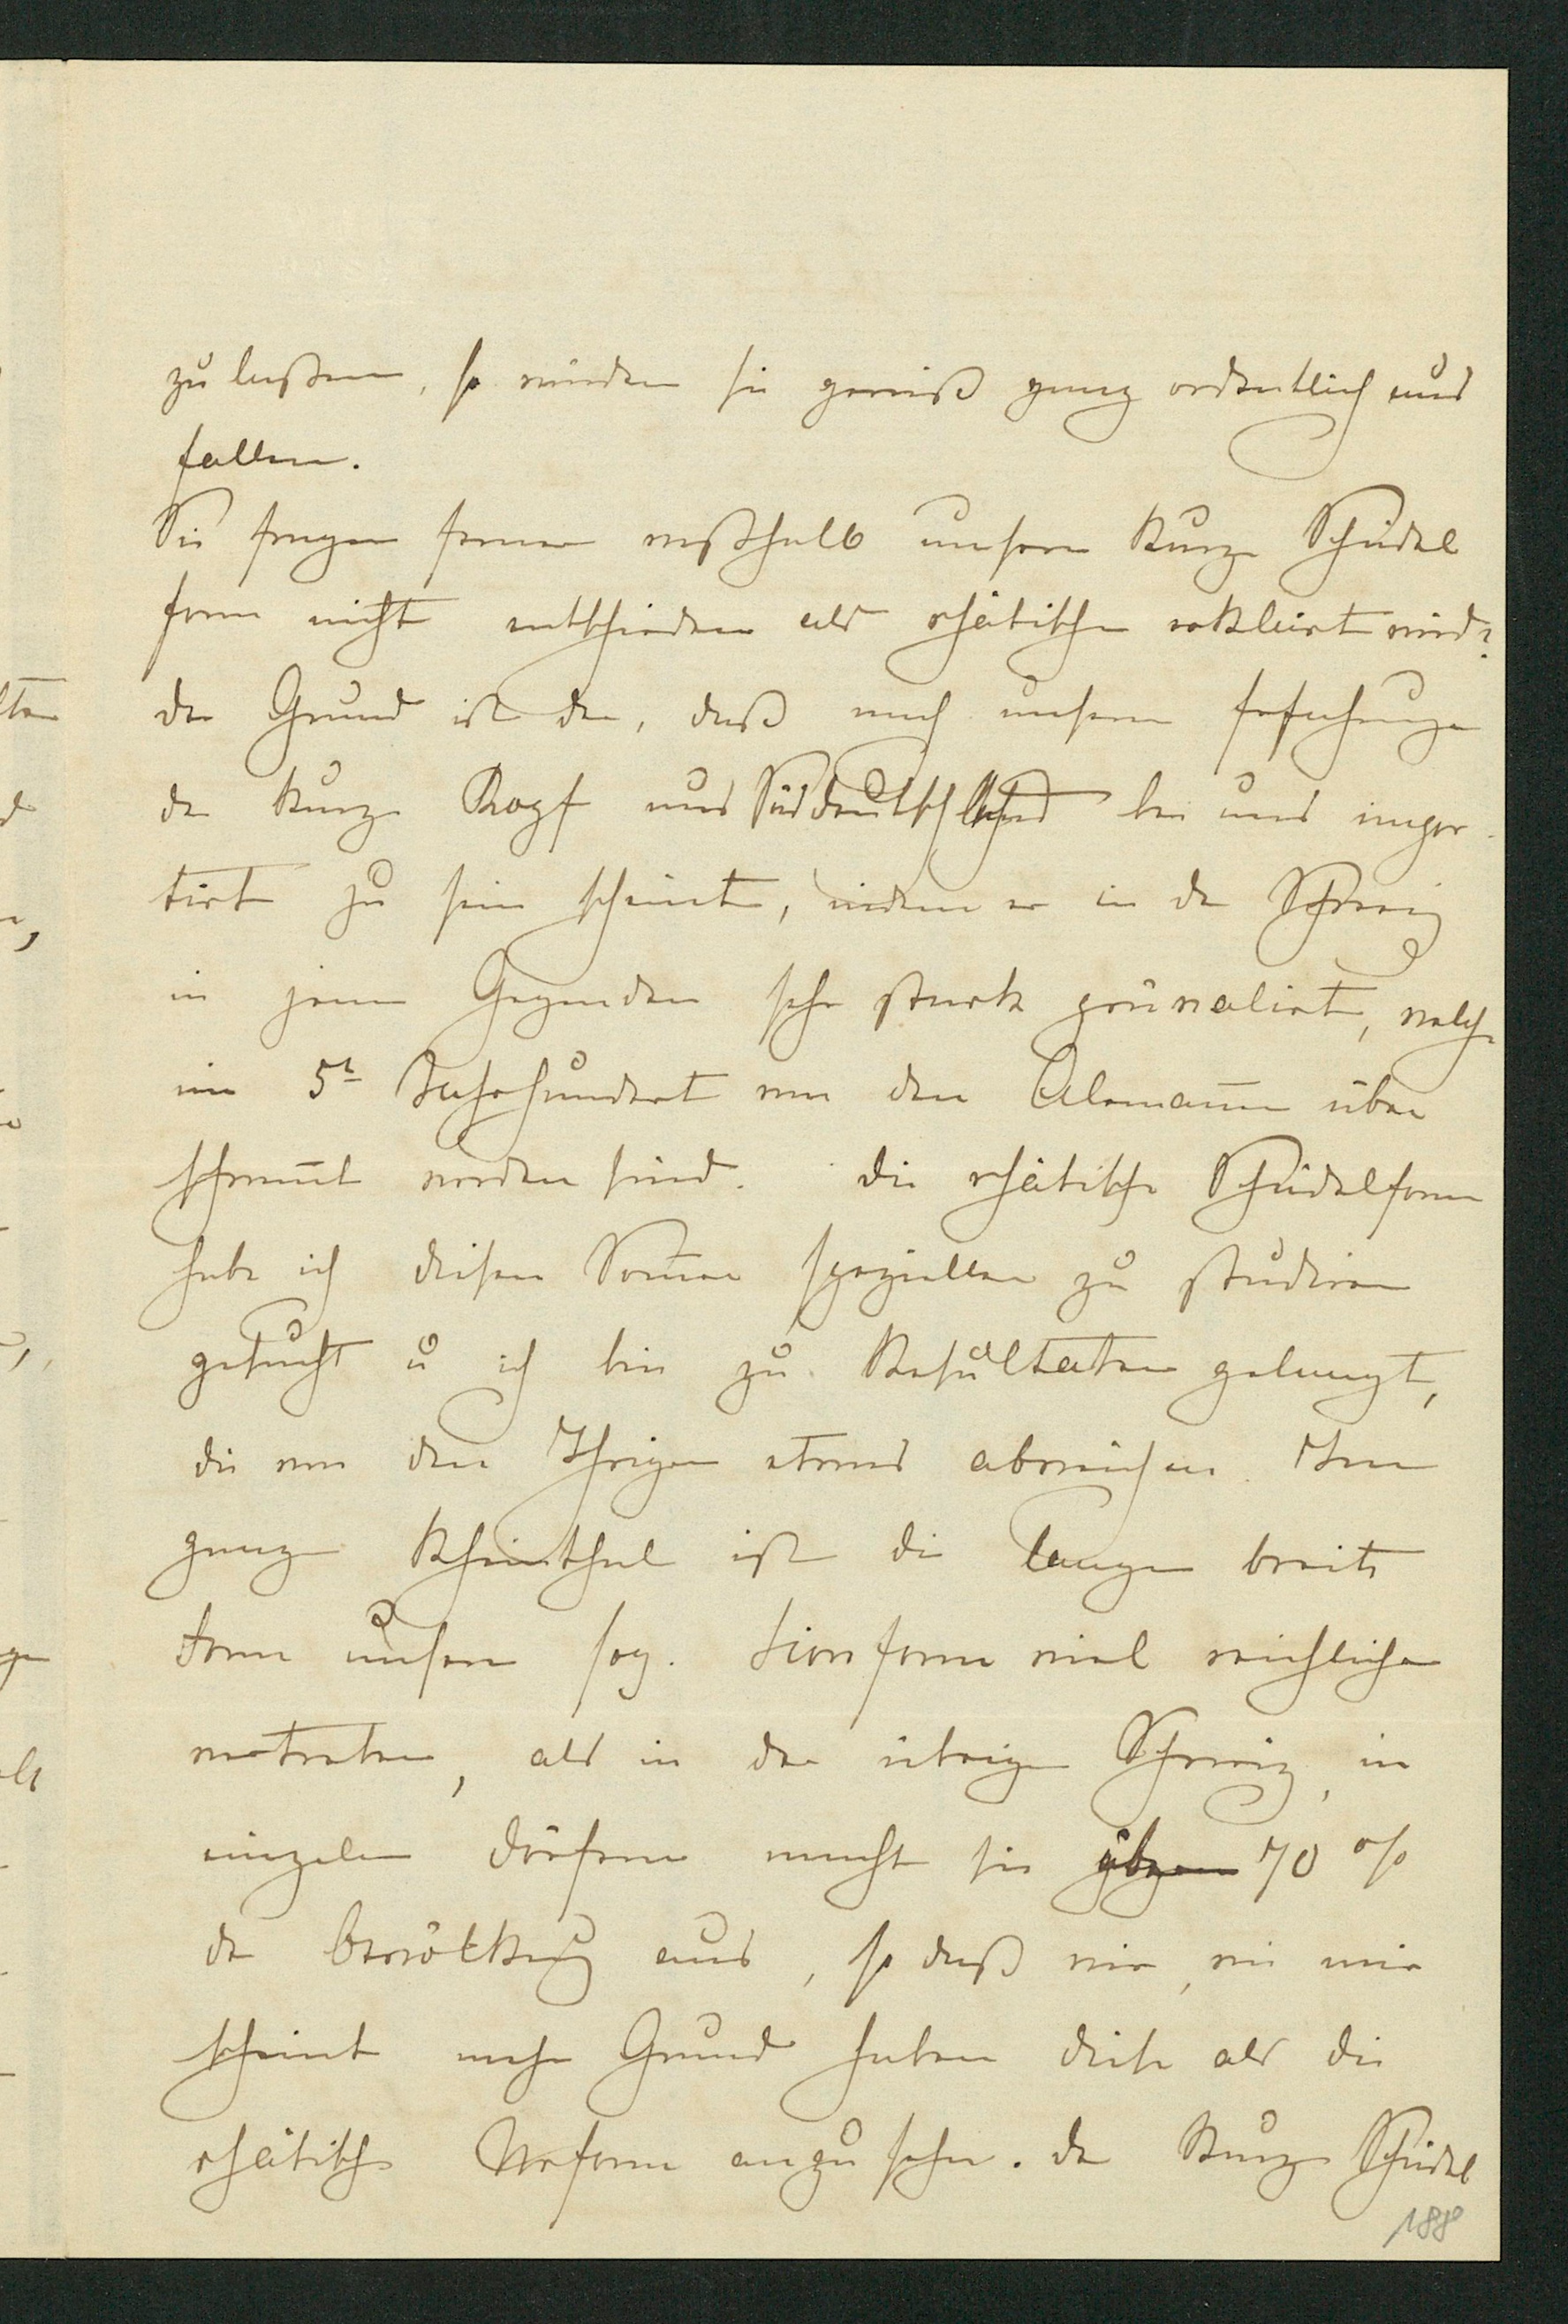 zu laßen, so würden sie gewiß ganz ordentlich aus
fallen.
Sie fragen ferner weßhalb unsere kurze Schädel
form nicht entschieden als rhätische erklärt wird?
der Grund ist der, daß nach unseren Erfahrungen
der kurze Kopf aus Süddeutschland bei uns impor
tirt zu sein scheint, indem er in der Schweiz
in jenen Gegenden sehr stark prävalirt, welche
im 5t Jahrhundert von den Alemañen über
schwem̄t worden sind. die rhätische Schädelform
habe ich diesen Som̄er spezieller zu studiren
gesucht u ich bin zu Resultaten gelangt,
die von den Ihrigen etwas abweichen. Im
ganzen Rheinthal ist die lange breite
Form unsere sog. Sionform viel reichlicher
vertreten, als in der übrigen Schweiz, in
einzelnen Dörfern macht sie 70 %
der Bevölkerung aus, so daß wir, wie mir
scheint mehr Grund haben diese als die
rhätische Urform anzusehen. der kurze Schädel
188